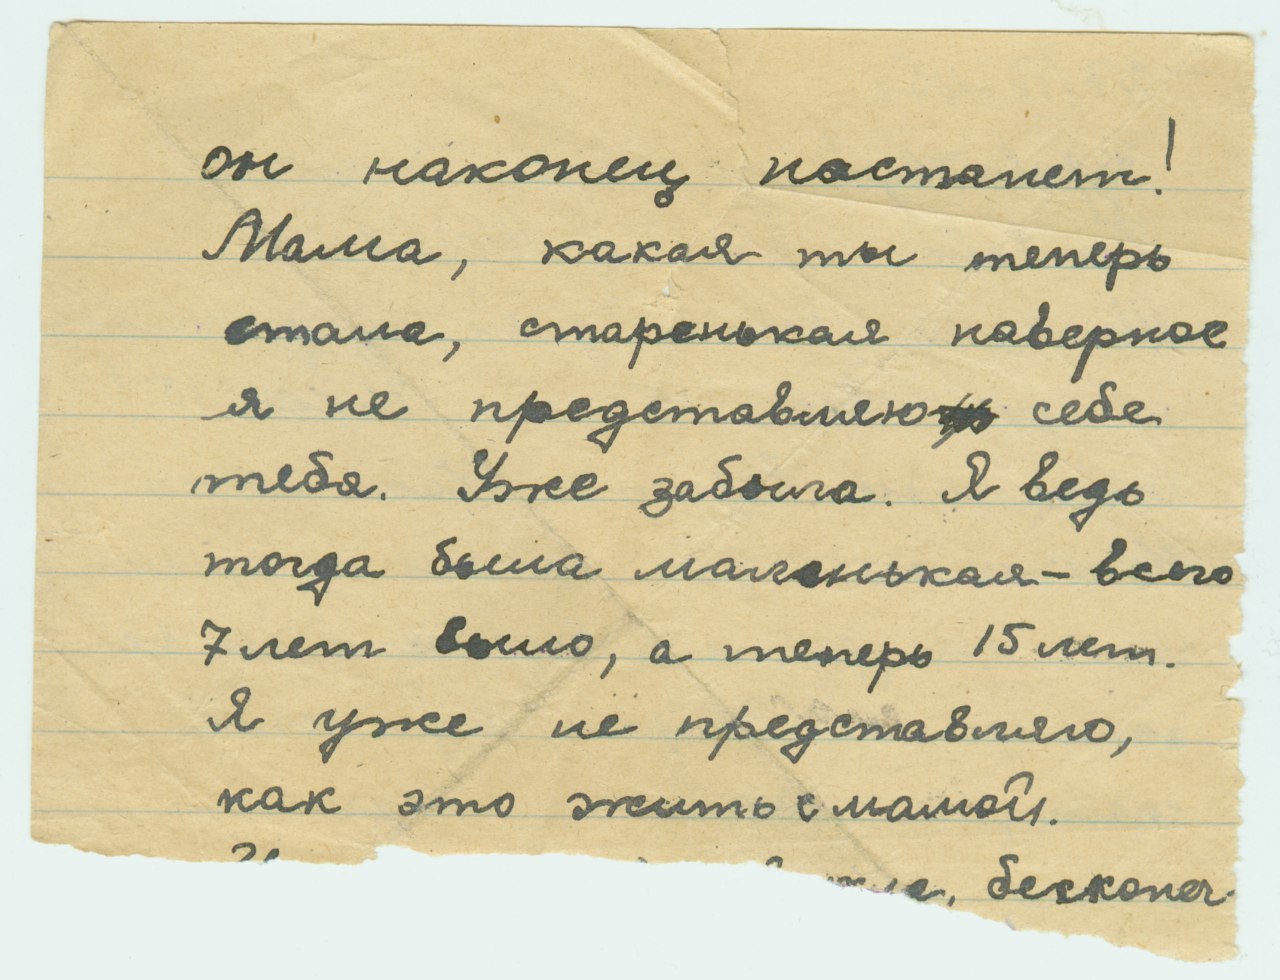 он наконец настанет!
Мама, какая ты теперь
стала, старенькая наверное
я не представляю себе
тебя. Уже забыла. Я ведь
тогда была маленькая – всего
7 лет было, а теперь 15 лет.
Я уже не представляю,
как это жить с мамой.
бесконеч